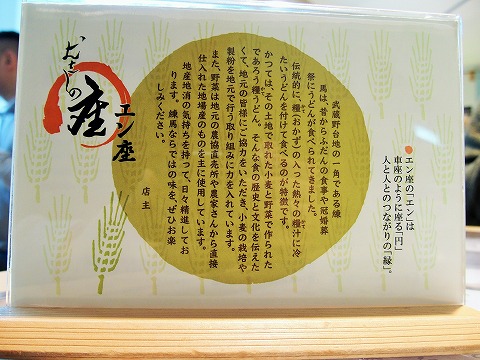 ●エン座の「エン」は
車座のように座る「円」
人と人とのつながりの「縁」。
武蔵野台地の一角である練
馬は、昔からふだんの食事や冠婚葬
祭にうどんが食べられてきました。
伝統的に、糧(おかず)の入った熱々の糧汁に冷
たいうどんを付けて食べるのが特徴です。
かつては、その土地で取れた小麦と野菜で作られた
であろう糧うどん。そんな食の歴史と文化を伝えた
くて、地元の皆様にご協力をいただき、小麦の栽培や
製粉を地元で行う取り組みに力を入れています。
また、野菜は地元の農協直売所や農家さんから直接
仕入れた地場産のものを主に使用しています。
地産地消の気持ちを持って、日々精進してお
ります。練馬ならではの味を、ぜひお楽
しみください。
店主
エン座
座